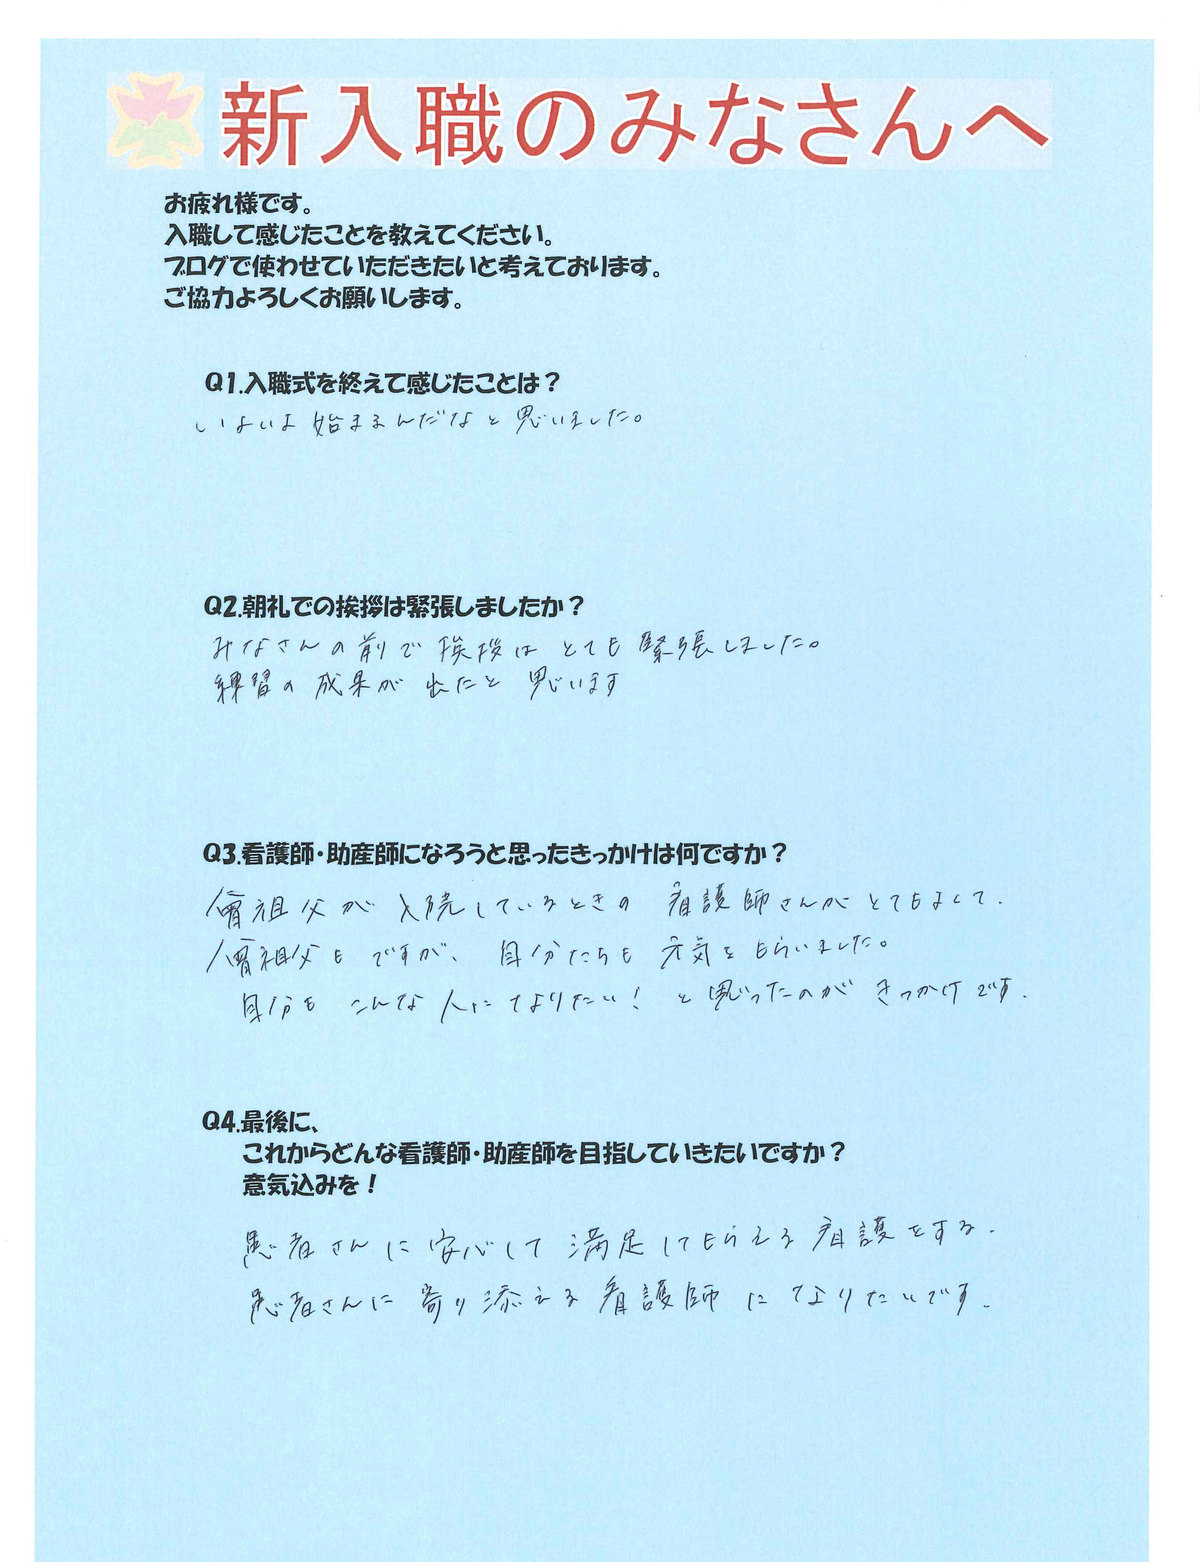 新入職のみなさんへ
お疲れ様です。
入職して感じたことを教えてください。
ブログで使わせていただきたいと考えております。
ご協力よろしくお願いします。
Q1.入職式を終えて感じたことは？
いよいよ始まるんだなと思いました。
Q2.朝礼での挨拶は緊張しましたか？
みなさんの前で挨拶はとても緊張しました。
練習の成果が出たと思います
Q3.看護師・助産師になろうと思ったきっかけは何ですか？
曾祖父が入院しているときの看護師さんがとてもよくて、
曾祖父もですが、自分たちも元気をもらいました。
自分もこんな人になりたい！と思ったのがきっかけです。
Q4.最後に、
これからどんな看護師・助産師を目指していきたいですか？
意気込みを！
患者さんに安心して満足してもらえる看護をする。
患者さんに寄り添える看護師になりたいです。